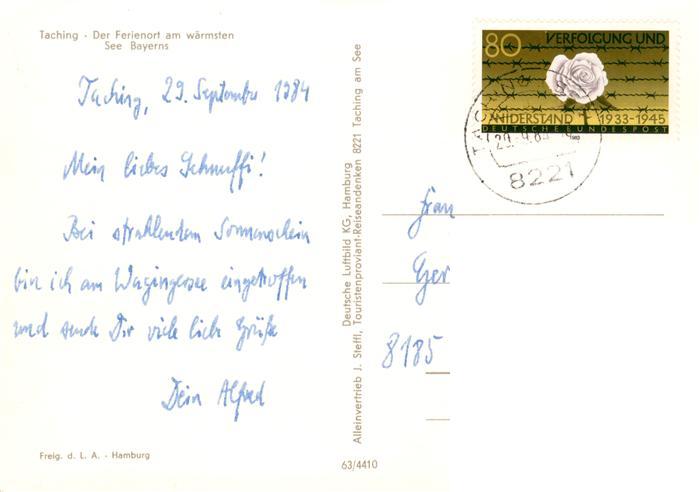 Taching - Der Ferienort am wärmsten
See Bayerns
Taching, 29. September 1984
Mein liebes Schnuffi!
Bei strahlendem Sonnenschein
bin ich am Wagingersee eingetroffen
und sende Dir viele liebe Grüße
Dein Alfred
Freig. d. L. A. - Hamburg
Deutsche Luftbild KG, Hamburg
Alleinvertrieb J. Steffl, Touristenproviant-Reiseandenken 8221 Taching am See
63/4410
80 VERFOLGUNG UND
WIDERSTAND 1933-1945
DEUTSCHE BUNDESPOST
TACHING
8221
Frau
Ger
8185